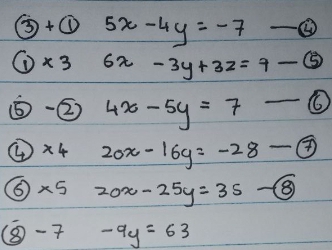 ③ + ① 5x - 4y = -7 — ④
① × 3 6x - 3y + 3z = 9 — ⑤
⑤ - ② 4x - 5y = 7 — ⑥
④ × 4 20x - 16y = -28 — ⑦
⑥ × 5 20x - 25y = 35 — ⑧
⑧ - 7 -9y = 63